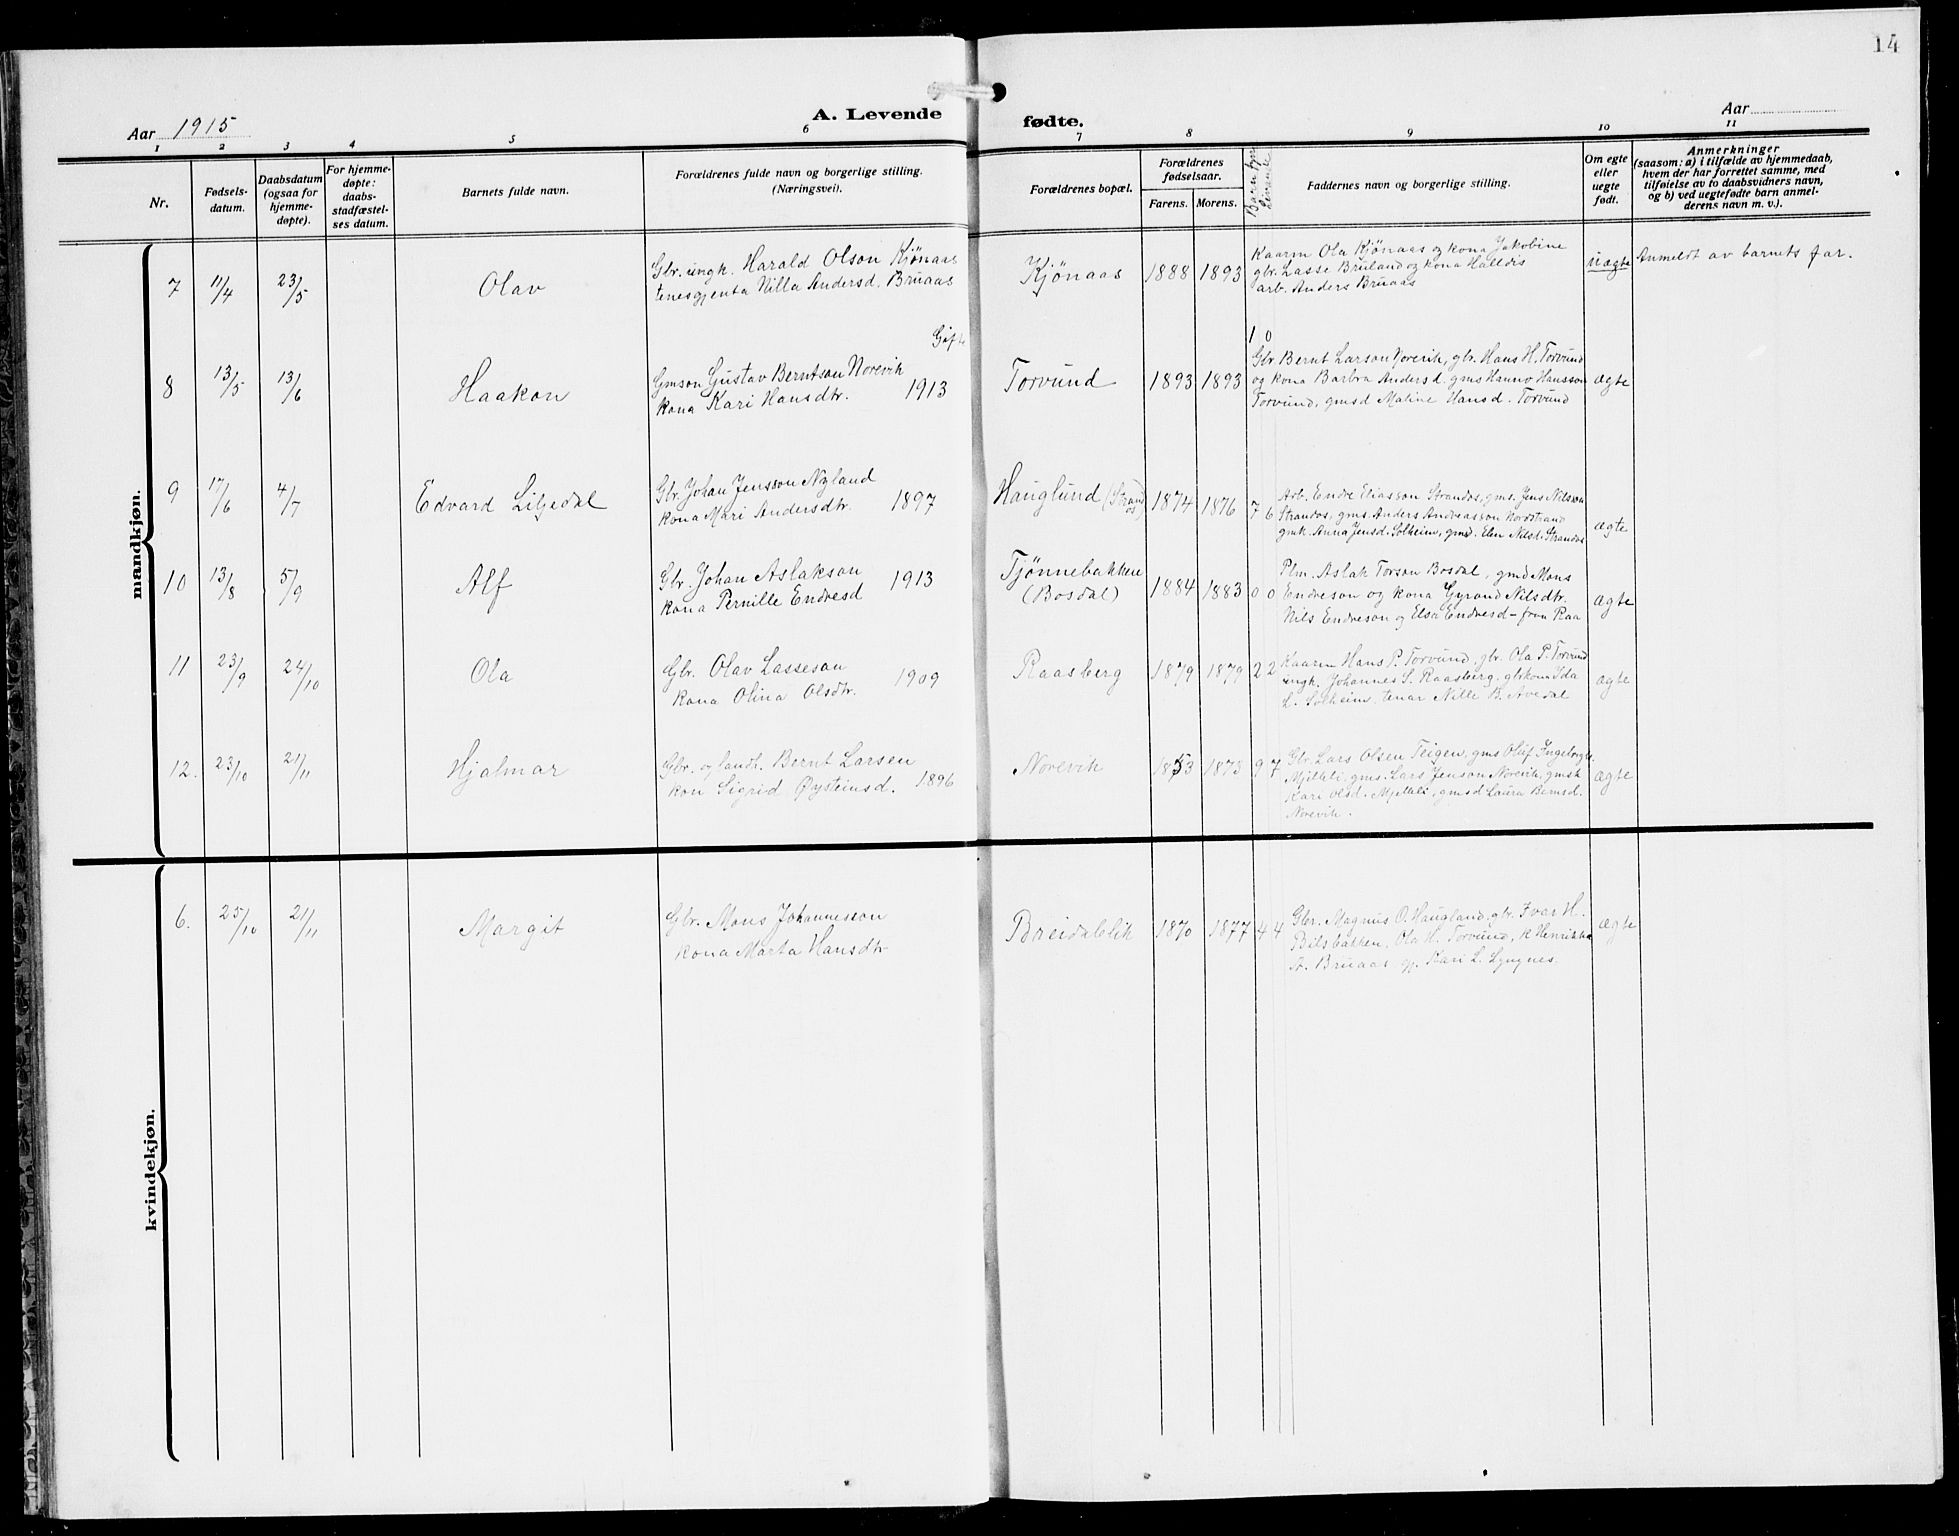 14
Aar 1915
A. Levende
fødte.
Aar
1 2 3 4 5 6 7 8 9 10 11
Nr.
Fødsels-
datum.
Daabsdatum
(ogsaa for
hjemme-
døpte).
For hjemme-
døpte:
daabs-
stadfæstel-
ses datum.
Barnets fulde navn.
Forældrenes fulde navn og borgerlige stilling.
(Næringsvei).
Forældrenes bopæl.
Forældrenes
fødselsaar.
Farens. Morens.
Faddernes navn og borgerlige stilling.
Om egte
eller
uegte
født.
Anmerkninger
(saasom: a) i tilfælde av hjemmedaab,
hvem der har forrettet samme, med
tilføielse av to daabsvidners navn,
og b) ved uegtefødte barn anmel-
derens navn m. v.).
mandkjøn.
7 11/4 23/5 Olav
Gbr. ungk. Harald Olson Kjönaas
tenesgjenta Nilla Andersd. Bruaas
Kjönaas 1888 1893
Kaarm Ola Kjönaas og kona Jakobine
gbr. Lasse Bruland og kona Halldis
arb. Anders Bruaas
uægte Anmeldt av barnets far.
Gifte
8 13/5 13/6 Haakon
Gmson Gustav Berntson Norevik
kona Kari Hansdtr. 1913
Torvund 1893 1893
1 0
Gbr Bernt Larson Norevik, gbr. Hans H. Torvund
og kona Barbra Andersd. gms Hanno Hansson
Torvund, gmsd Maline Hansd. Torvund
ægte
9 17/6 4/7 Edvard Liljedal
Gbr. Johan Jensson Nyland
kona Mari Andersdtr. 1897
Hauglund (Strandos) 1874 1876 7 6
Arb. Endre Eliasson Strandos, gms. Jens Nilsson
Strandos, gms. Anders Andreasson Nordstrand
gmk. Anna Jensd. Solheim, gmd. Elen Nilsd. Strandos
ægte
10 13/8 5/9 Alf
Gbr. Johan Aslakson
kona Pernille Endresd 1913
Tjönnebakken
(Bosdal) 1884 1883 0 0
Plm. Aslak Torson Bosdal, gmd Mons
Endreson og kona Gyrond Nilsdtr.
Nils Endreson og Elsa Endresd - frau Raa
ægte
11 23/9 24/10 Ola
Gbr. Olav Lasseson
kona Olina Olsdtr. 1909
Raasberg 1879 1879 2 2
Kaarm Hans P. Torvund, gbr. Ola P. Torvund
ungk. Johannes S. Raasberg, gbkona Ida
L. Solheim, tenar Nille B. Avedal
ægte
12. 23/10 21/11 Hjalmar
Gbr. og landh. Bernt Larsen
kon Sigrid Øysteinsd. 1896
Norevik 1853 1873 9 7
Gbr. Lars Olsen Teigen, gms Oluf Ingebrigts
Mjelteli, gms. Lars Jenson Norevik, gmsk
Kari Olsd. Mjelteli, gmsd Laura Bernsd.
Norevik.
ægte
kvindekjøn.
6. 25/10 21/11 Margit
Gbr. Mons Johannesson
kona Marta Hansdtr
Breidablik 1870 1877 4 4
Gbr. Magnus O. Haugland, gbr. Ivar H.
Bilsbakken, Ola H. Torvund, k Henrikka
A. Bruaas, Kari L. Lyngnes.
ægte